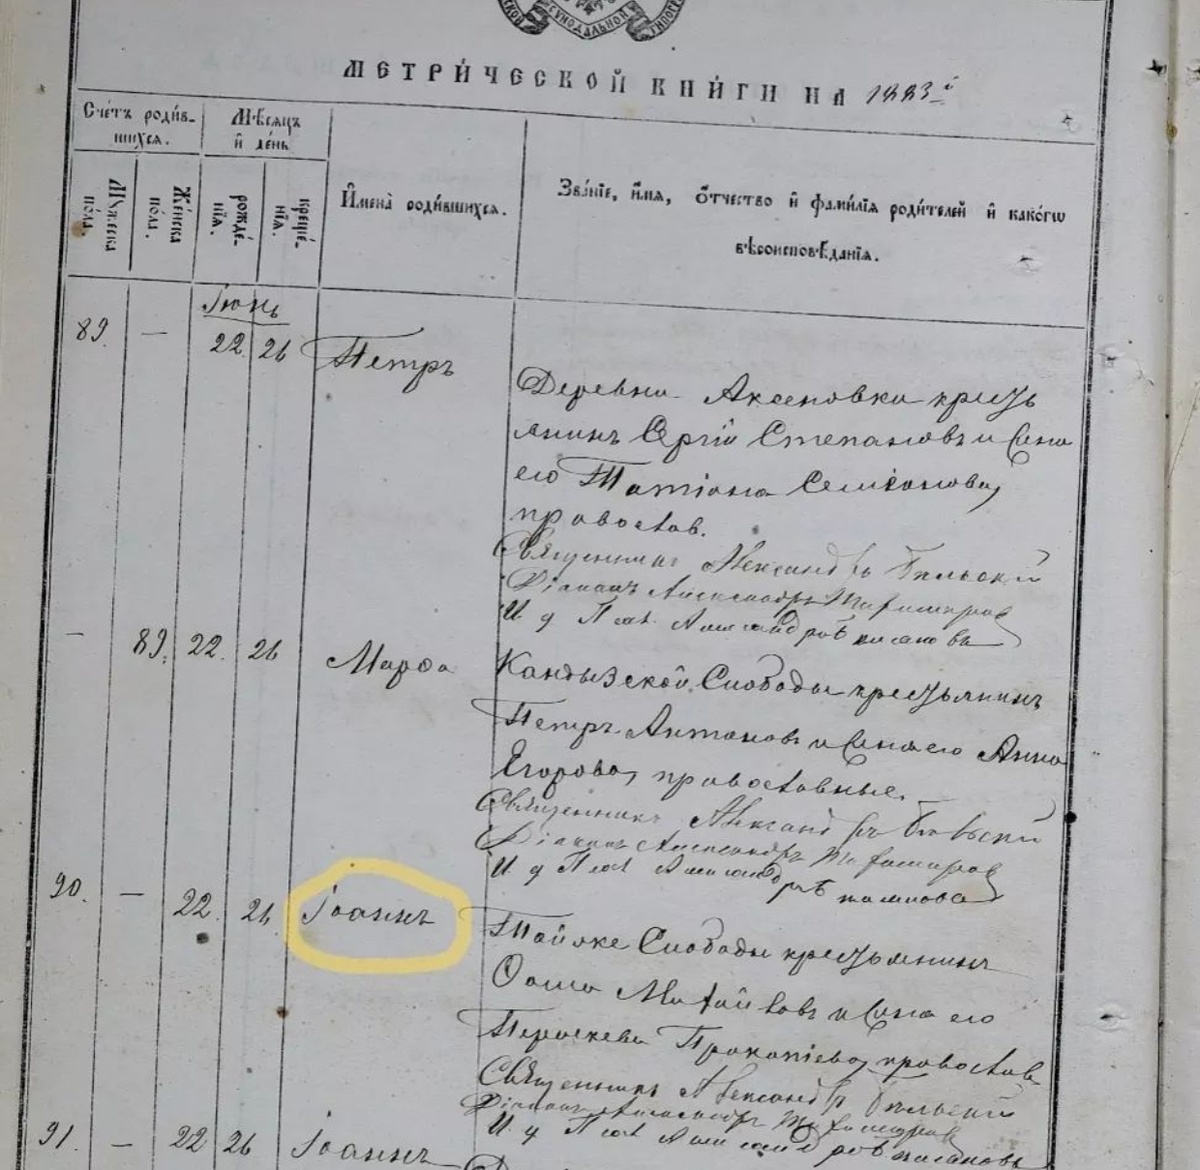 СѴНОДАЛЬНОЙ
МЕТРИ́ЧЕСКОЙ КНИ́ГИ НА 1883 г
Сче́тъ роди́в-
шихсѧ.
Мѣ́сѧцъ
и҆ де́нь
Му́жеска
по́ла.
Же́нска
по́ла.
рожде́-
нїѧ.
креще́-
нїѧ.
И҆мена̀ роди́вшихсѧ.
Зва́нїе, и҆́мѧ, ѻ҆́тчество и҆ фами́лїѧ роди́телей и҆ како́гѡ
вѣроисповѣ́данїѧ.
Іюнь
89. — 22 26 Петръ
Деревни Аксеновки кресть
янинъ Сергій Степановъ и жена
его Татіана Семенова,
православ.
Священникъ Александръ Бѣльскій
Діаконъ Александръ
И. д. Псал. Александръ
— 89. 22. 26 Марѳа Кандызской Слободы крестьянинъ
Петръ Антоновъ и жена его Анна
Егорова, православные.
Священникъ Александръ Бѣльскій
Діаконъ Александръ
И. д. Псал. Александръ
90. — 22. 26. Іоаннъ
Тойже Слободы крестьянинъ
Ѳома Михайловъ и жена его
Параскева Прокопіева, православ.
Священникъ Александръ Бѣльскій
Діаконъ Александръ
И. д. Псал. Александръ
91. — 22 26 Іоаннъ